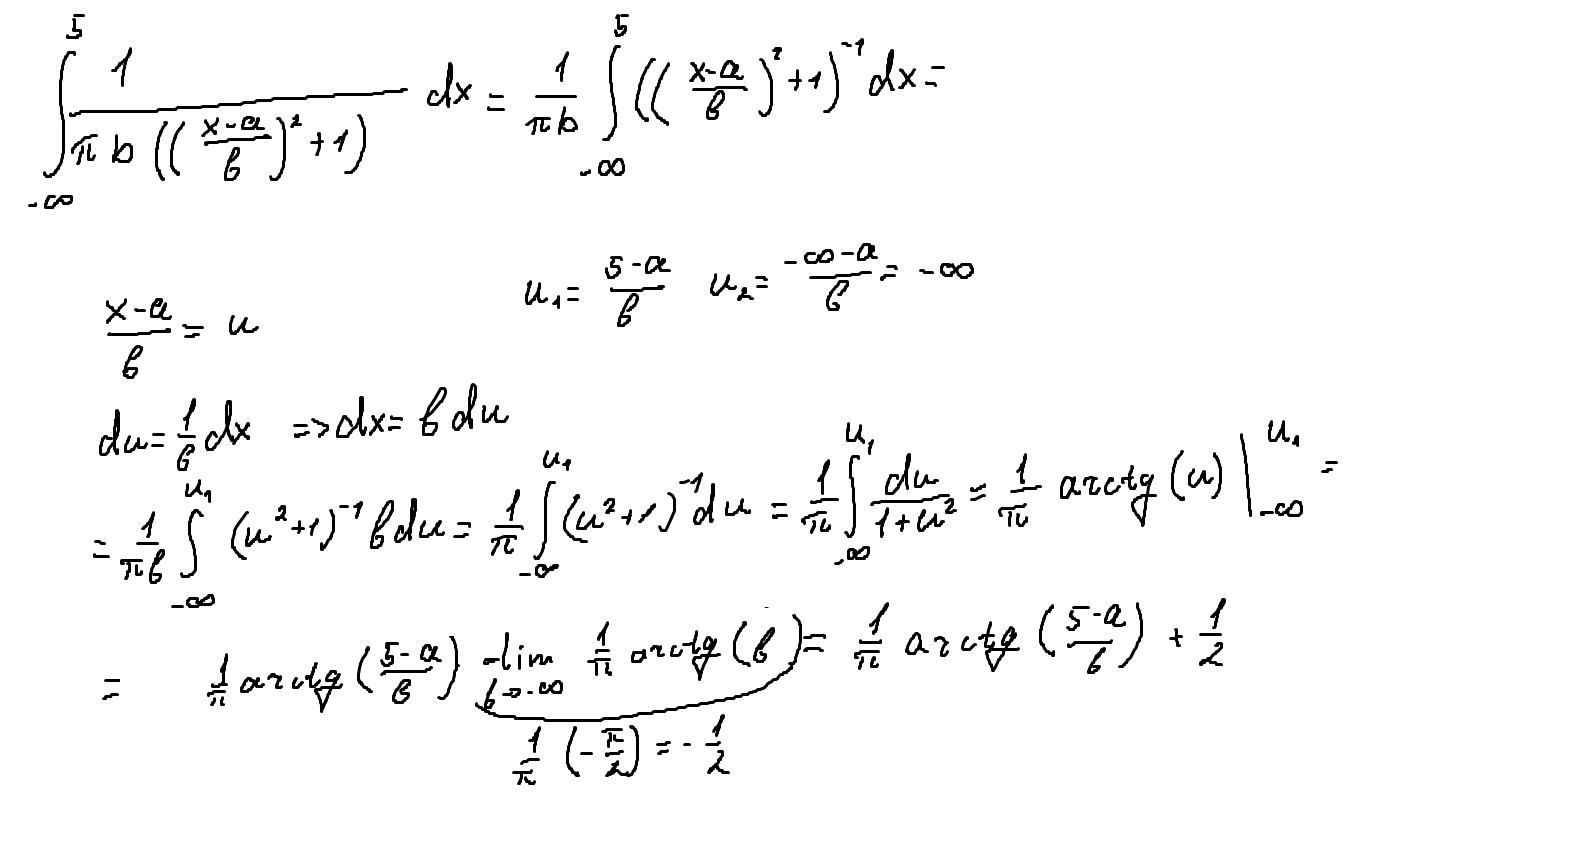 ∫_{-∞}^{5} 1/(πb(((x-a)/b)²+1)) dx = 1/(πb) ∫_{-∞}^{5} (((x-a)/b)²+1)⁻¹ dx =
(x-a)/b = u   u₁ = (5-a)/b   u₂ = (-∞-a)/b = -∞
du = 1/b dx => dx = b du
= 1/(πb) ∫_{-∞}^{u₁} (u²+1)⁻¹ b du = 1/π ∫_{-∞}^{u₁} (u²+1)⁻¹ du = 1/π ∫_{-∞}^{u₁} du/(1+u²) = 1/π arctg(u) |_{-∞}^{u₁} =
= 1/π arctg((5-a)/b) - lim_{b→-∞} 1/π arctg(b) = 1/π arctg((5-a)/b) + 1/2
1/π (-π/2) = -1/2